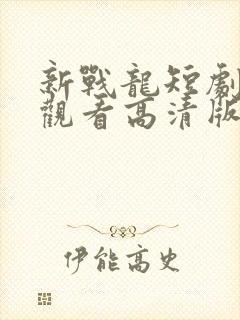 新戰龍短劇
觀看高清版
伊能高史